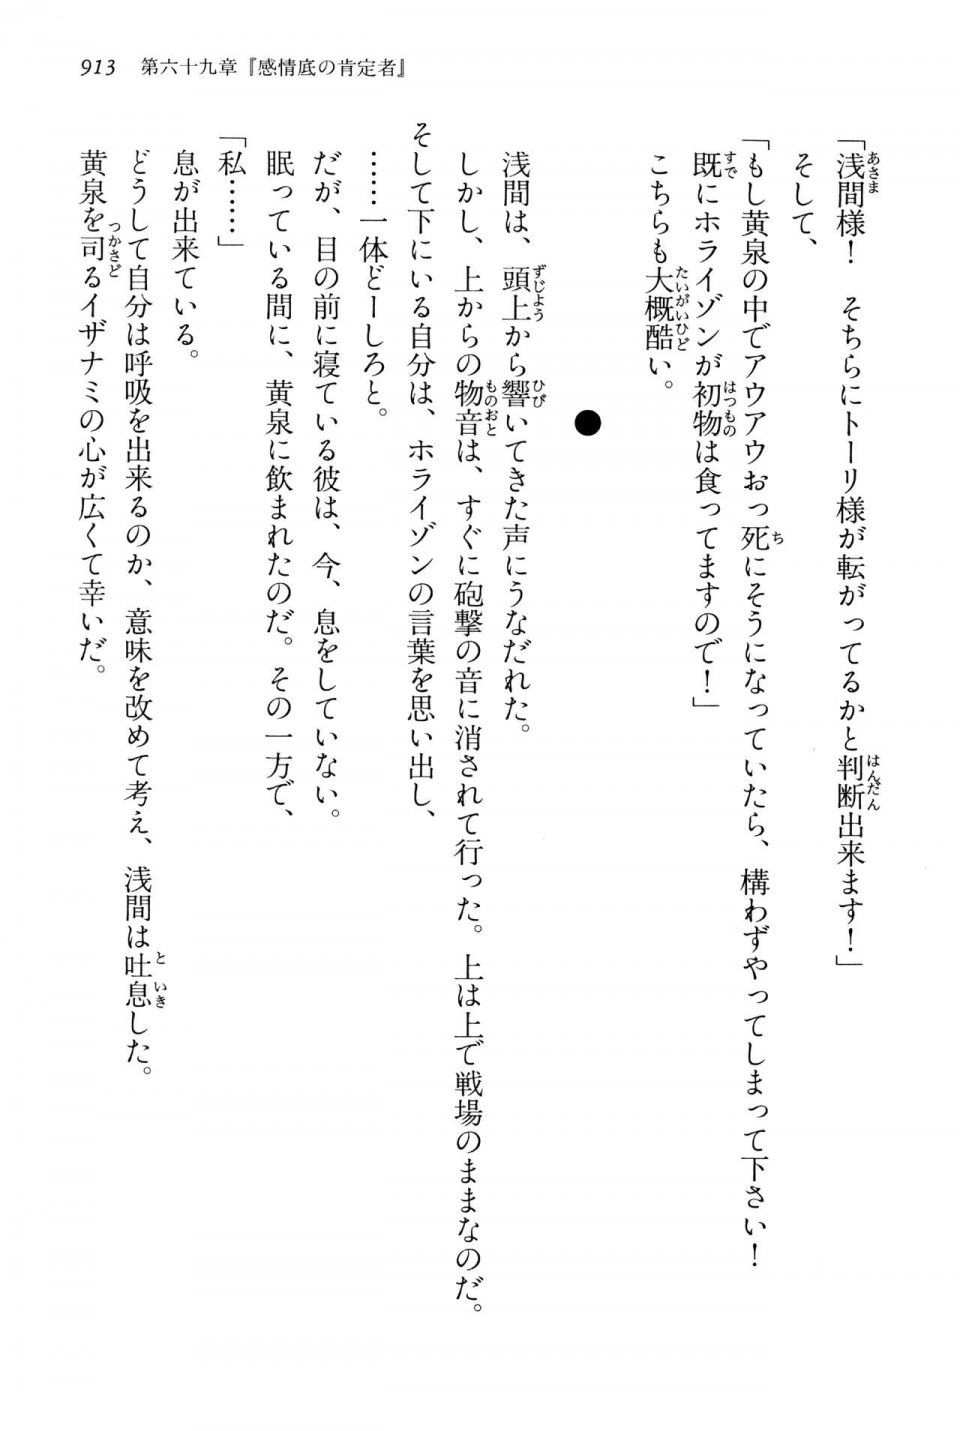 913 第六十九章『感情底の肯定者』
「浅間様！　そちらにトーリ様が転がってるかと判断出来ます！」
そして、
「もし黄泉の中でアウアウおっ死にそうになっていたら、構わずやってしまって下さい！
既にホライゾンが初物は食ってますので！」
こちらも大概酷い。
●
浅間は、頭上から響いてきた声にうなだれた。
しかし、上からの物音は、すぐに砲撃の音に消されて行った。上は上で戦場のままなのだ。
そして下にいる自分は、ホライゾンの言葉を思い出し、
……一体どーしろと。
だが、目の前に寝ている彼は、今、息をしていない。
眠っている間に、黄泉に飲まれたのだ。その一方で、
「私……」
息が出来ている。
どうして自分は呼吸を出来るのか、意味を改めて考え、浅間は吐息した。
黄泉を司るイザナミの心が広くて幸いだ。